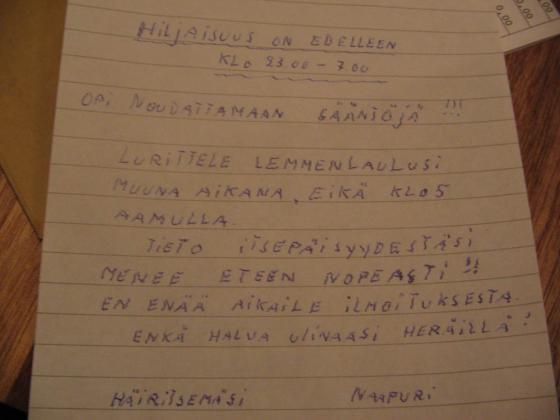 HiLJAISUUS ON EDELLEEN
KLO 23.00 - 7.00
OPI NOUDATTAMAAN SÄÄNTÖJÄ !!!
LURITTELE LEMMENLAULUSI
MUUNA AIKANA, EIKÄ KLO 5
AAMULLA.
TIETO ITSEPÄISYYDESTÄSI
MENEE ETEEN NOPEASTI !!
EN ENÄÄ AIKAILE ILMOITUKSESTA.
ENKÄ HALUA ULINAASI HERÄILLÄ!
HÄIRITSEMÄSI NAAPURI
0,00
0,00